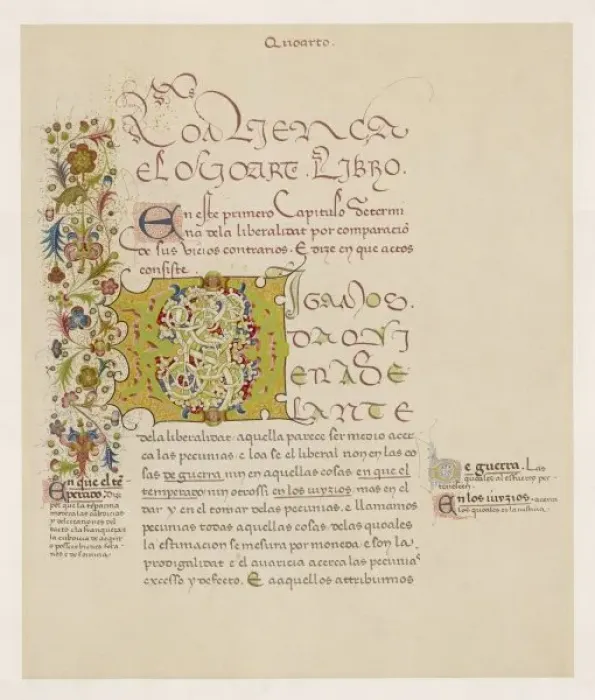 Quarto.
Comiença
el Quart. Libro.
En este primero Capitulo determi
na dela liberalidat por comparaciõ
de sus vicios contrarios. E dize en que actos
consiste.
Digamos.
daqui
enade
lante
dela liberalidat. aquella parece ser medio acer
ca las pecunias. e loa se el liberal non en las co
sas de guerra. nin en aquellas cosas. en que el
temperado. nin otrossi en los iuyzios. mas en el
dar y en el tomar delas pecunias. e llamamos
pecunias todas aquellas cosas. delas quales
la estimacion se mesura por moneda. e son la
prodigalidat e el auaricia acerca las pecunias
excesso y defecto. E a aquellos attribuimos
En que el tẽ
perado.
De guerra. Las
quales al esfuerço per
tenescen.
En los iuyzios. acerca
los quales es la iusticia.